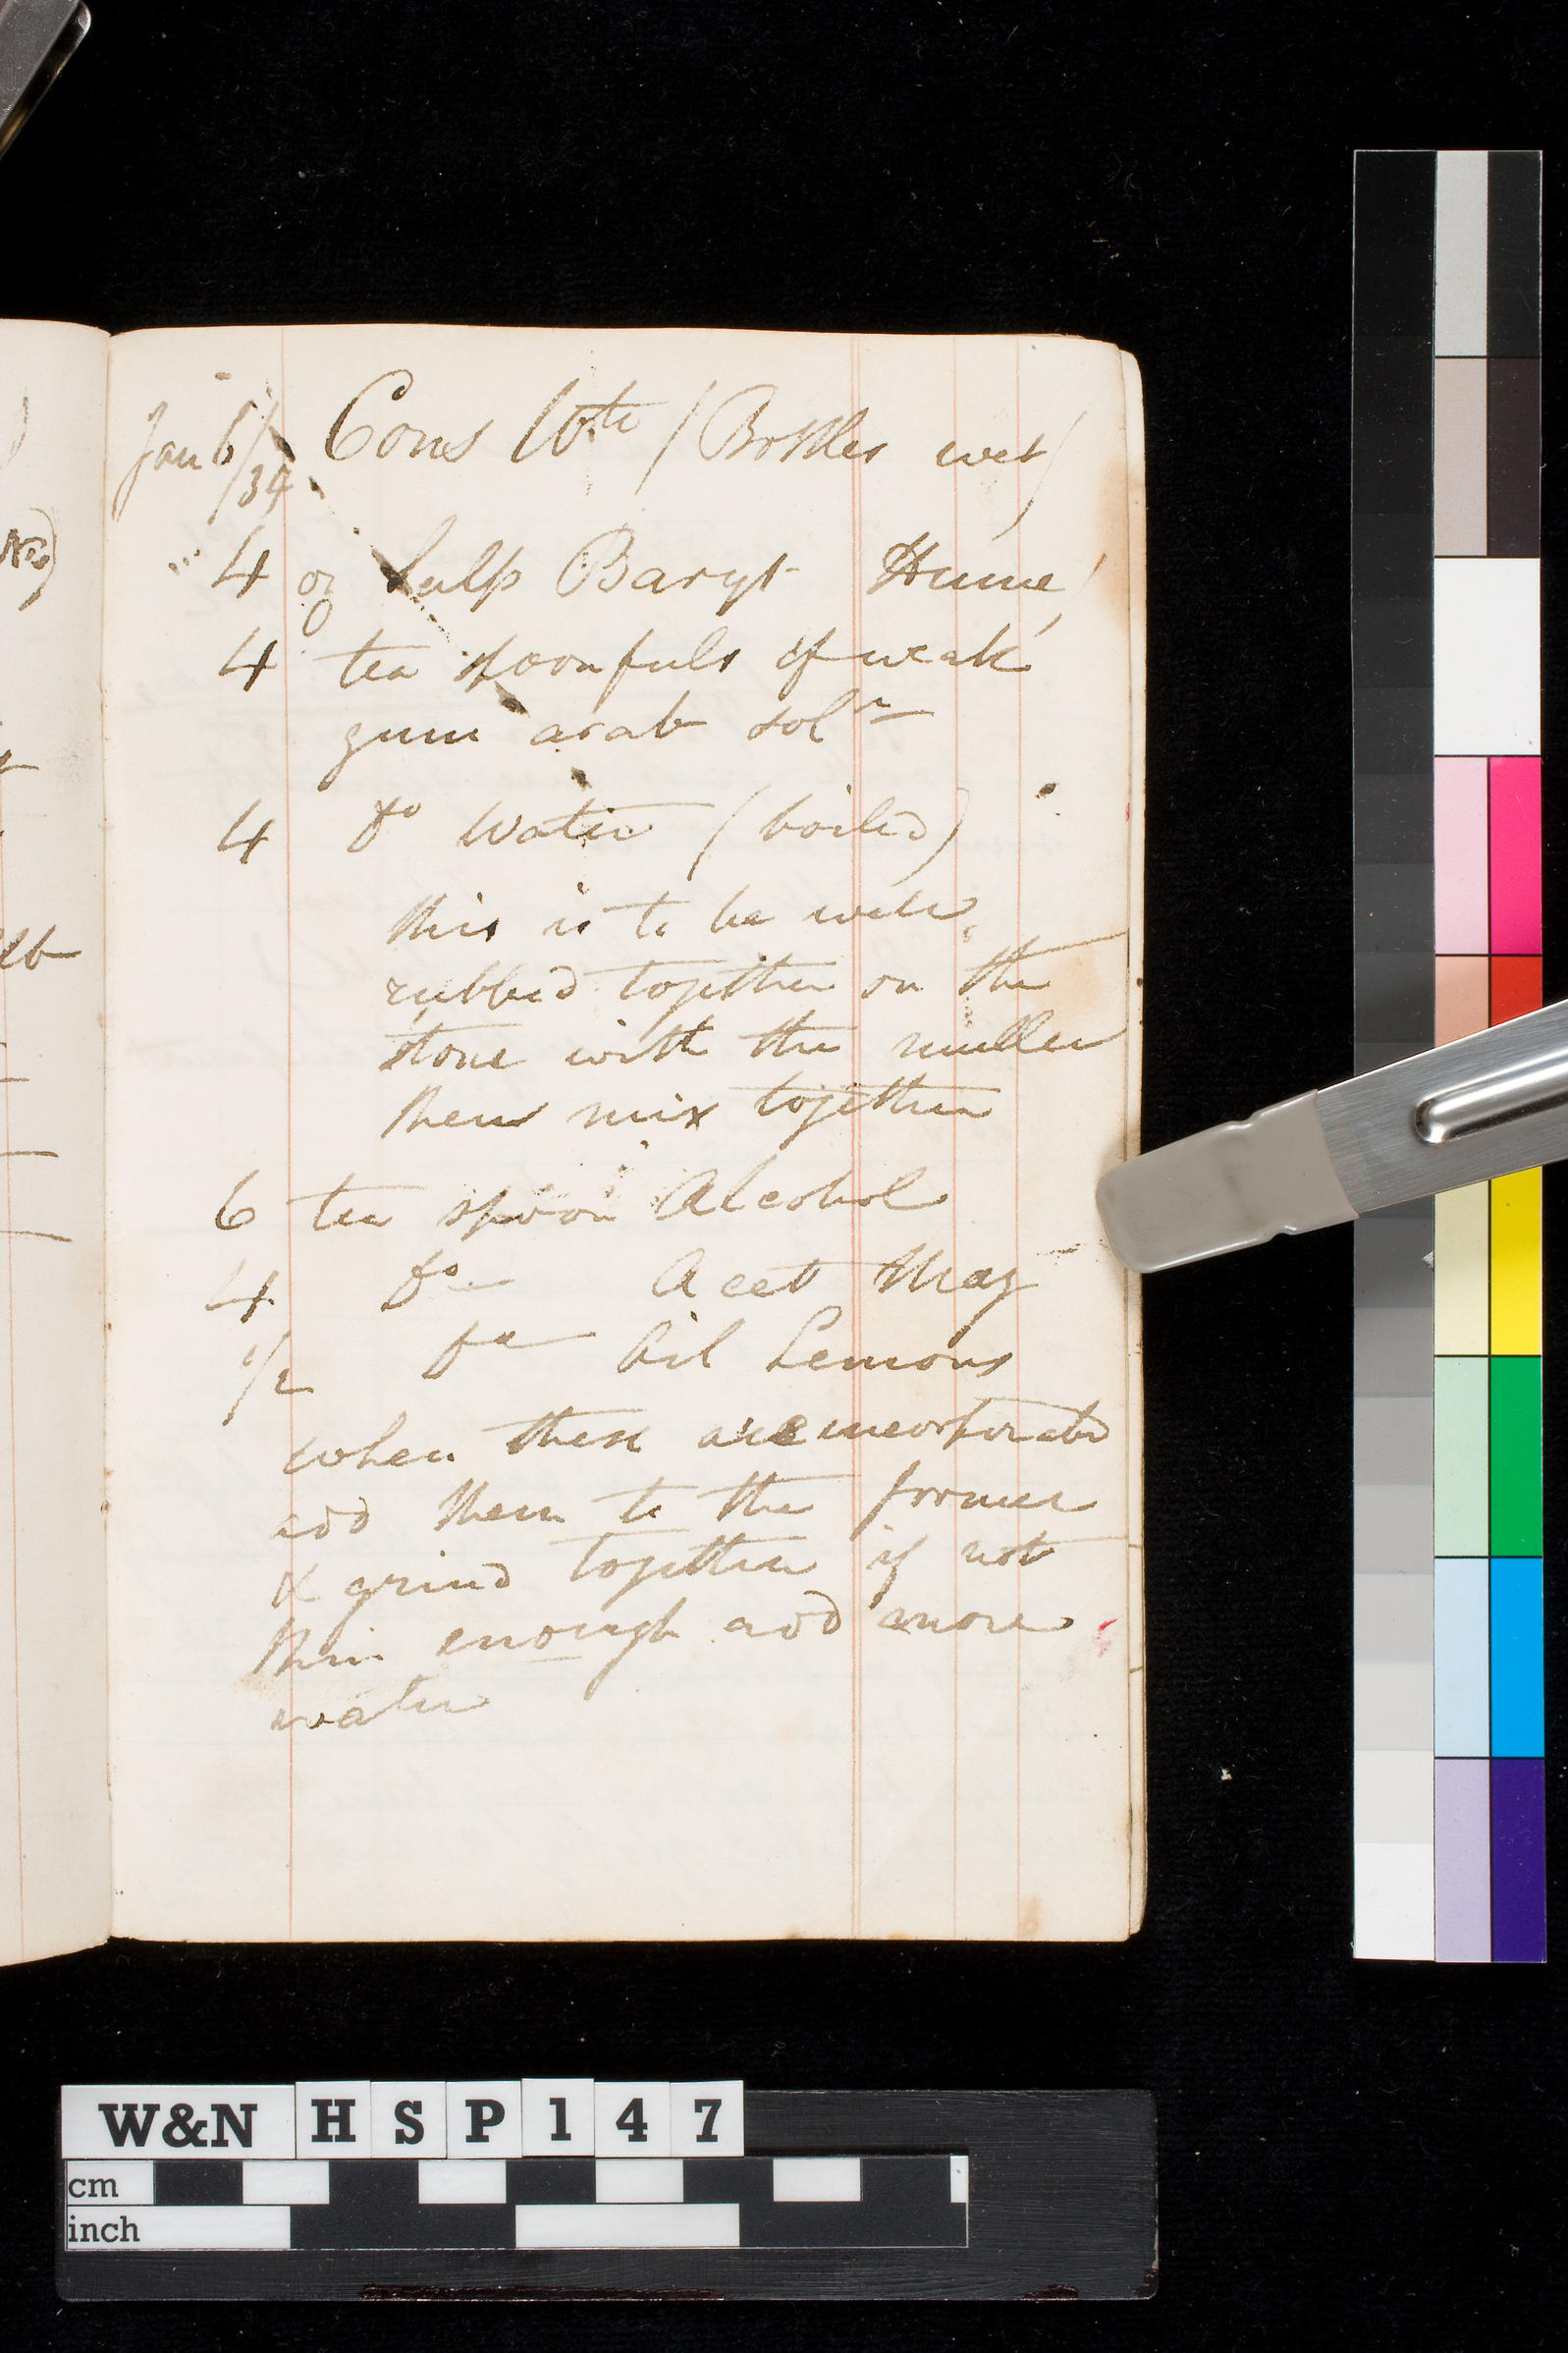 Jan 6/34 Cons Wte (Bottles wet)
4 oz Sulp Baryt Hume
4 tea spoonfuls of weak
gum arab soln
4 do Water (boiled)
this is to be well
rubbed together on the
stone with the muller
then mix together
6 tea spoon Alcohol
4 do Acet Mag
1/2 do Oil Lemons
when these are incorporated
add them to the former
& grind together if not
thin enough add more
water
No)
lb
W&N H S P 1 4 7
cm
inch